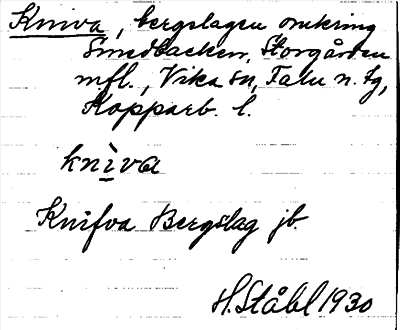 Kniva, bergslagen omkring
Smedbacken, Storgården
m.fl., Vika sn, Falu n. tg,
Kopparb. l.
knìva
Knifva Bergslag jb.
H. Ståhl 1930